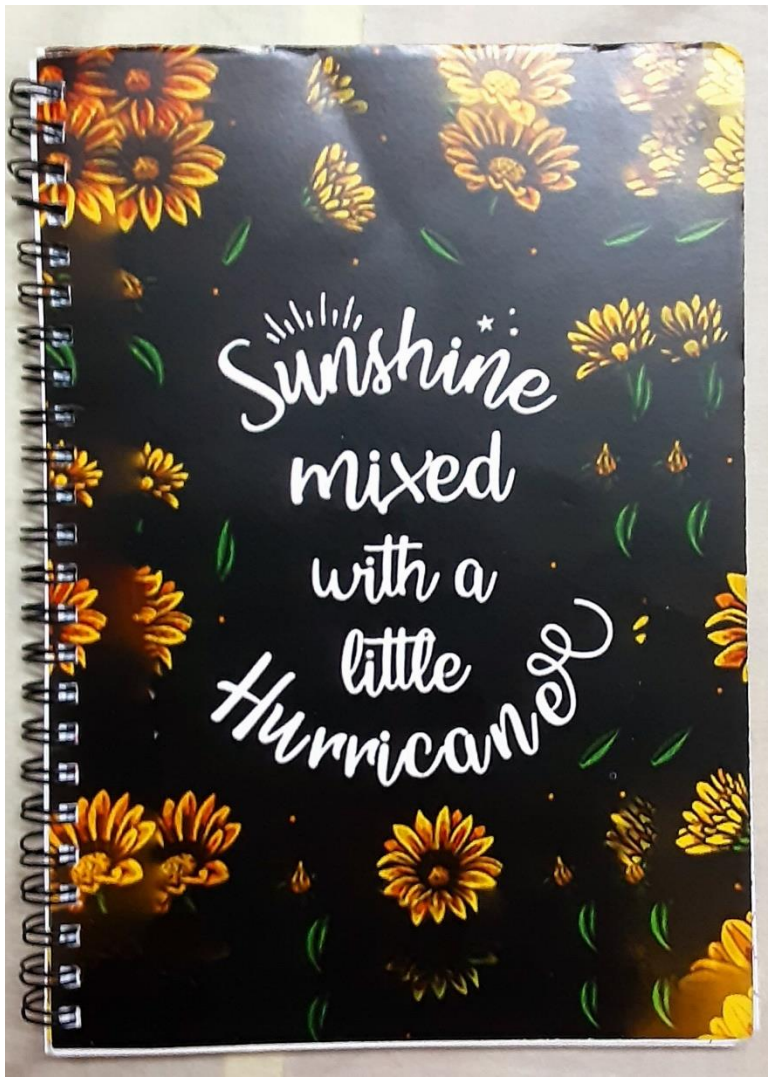 Sunshine
mixed
with a
little
Hurricane